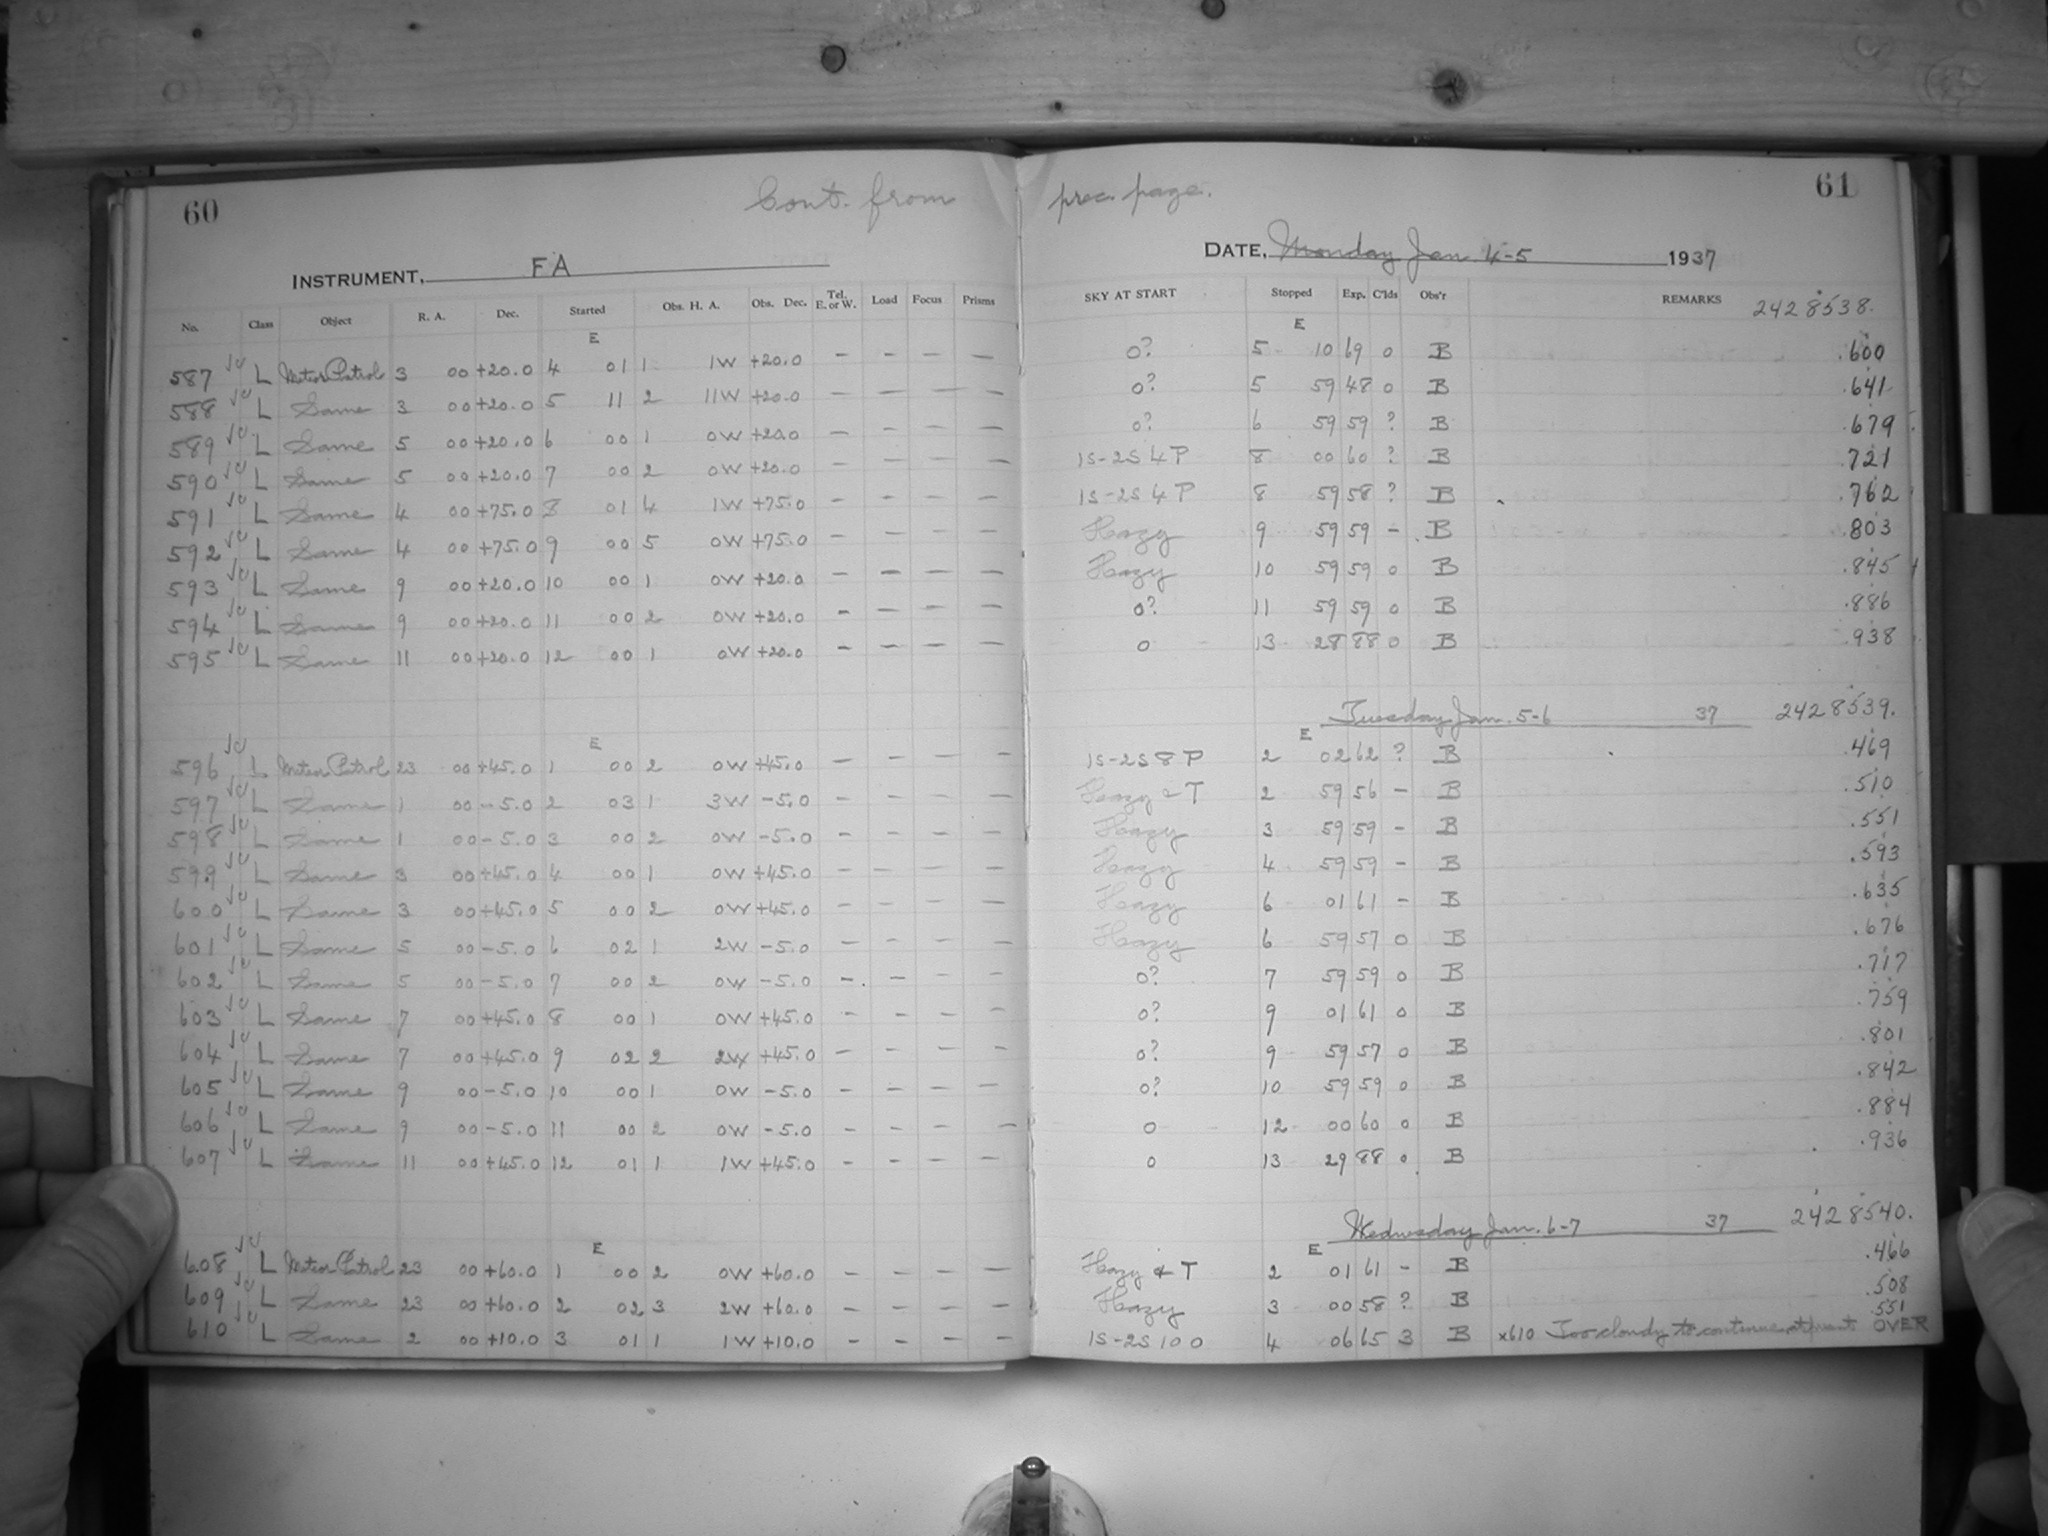 60 Cont. from prec. page. 61
INSTRUMENT, FA DATE, Monday Jan. 4-5 1937
No. Class Object R. A. Dec. Started Obs. H. A. Obs. Dec. Tel. E. or W. Load Focus Prisms SKY AT START Stopped Exp. C'lds Obs'r REMARKS 2428538.
E E
587 L Meteor Patrol 3 00 +20.0 4 01 1 1W +20.0 – – – – 0? 5 10 69 0 B .600
588 L Same 3 00 +20.0 5 11 2 11W +20.0 – – – – 0? 5 59 48 0 B .641
589 L Same 5 00 +20.0 6 00 1 0W +20.0 – – – – 0? 6 59 59 ? B .679
590 L Same 5 00 +20.0 7 00 2 0W +20.0 – – – – 1S-2S 4 P 8 00 60 ? B .721
591 L Same 4 00 +75.0 8 01 4 1W +75.0 – – – – 1S-2S 4 P 8 59 58 ? B .762
592 L Same 4 00 +75.0 9 00 5 0W +75.0 – – – – Hazy 9 59 59 – B .803
593 L Same 9 00 +20.0 10 00 1 0W +20.0 – – – – Hazy 10 59 59 0 B .845
594 L Same 9 00 +20.0 11 00 2 0W +20.0 – – – – 0? 11 59 59 0 B .886
595 L Same 11 00 +20.0 12 00 1 0W +20.0 – – – – 0 13 28 88 0 B .938
Tuesday Jan. 5-6 37 2428539.
E E
596 L Meteor Patrol 23 00 +45.0 1 00 2 0W +45.0 – – – – 1S-2S 8 P 2 02 62 ? B .469
597 L Same 1 00 -5.0 2 03 1 3W -5.0 – – – – Hazy & T 2 59 56 – B .510
598 L Same 1 00 -5.0 3 00 2 0W -5.0 – – – – Hazy 3 59 59 – B .551
599 L Same 3 00 +45.0 4 00 1 0W +45.0 – – – – Hazy 4 59 59 – B .593
600 L Same 3 00 +45.0 5 00 2 0W +45.0 – – – – Hazy 6 01 61 – B .635
601 L Same 5 00 -5.0 6 02 1 2W -5.0 – – – – Hazy 6 59 57 0 B .676
602 L Same 5 00 -5.0 7 00 2 0W -5.0 – – – – 0? 7 59 59 0 B .717
603 L Same 7 00 +45.0 8 00 1 0W +45.0 – – – – 0? 9 01 61 0 B .759
604 L Same 7 00 +45.0 9 02 2 2W +45.0 – – – – 0? 9 59 57 0 B .801
605 L Same 9 00 -5.0 10 00 1 0W -5.0 – – – – 0? 10 59 59 0 B .842
606 L Same 9 00 -5.0 11 00 2 0W -5.0 – – – – 0 12 00 60 0 B .884
607 L Same 11 00 +45.0 12 01 1 1W +45.0 – – – – 0 13 29 88 0 B .936
Wednesday Jan. 6-7 37 2428540.
E E
608 L Meteor Patrol 23 00 +60.0 1 00 2 0W +60.0 – – – – Hazy & T 2 01 61 – B .466
609 L Same 23 00 +60.0 2 02 3 2W +60.0 – – – – Hazy 3 00 58 ? B .508
610 L Same 2 00 +10.0 3 01 1 1W +10.0 – – – – 1S-2S 10 0 4 06 65 3 B x610 Too cloudy to continue .551 OVER